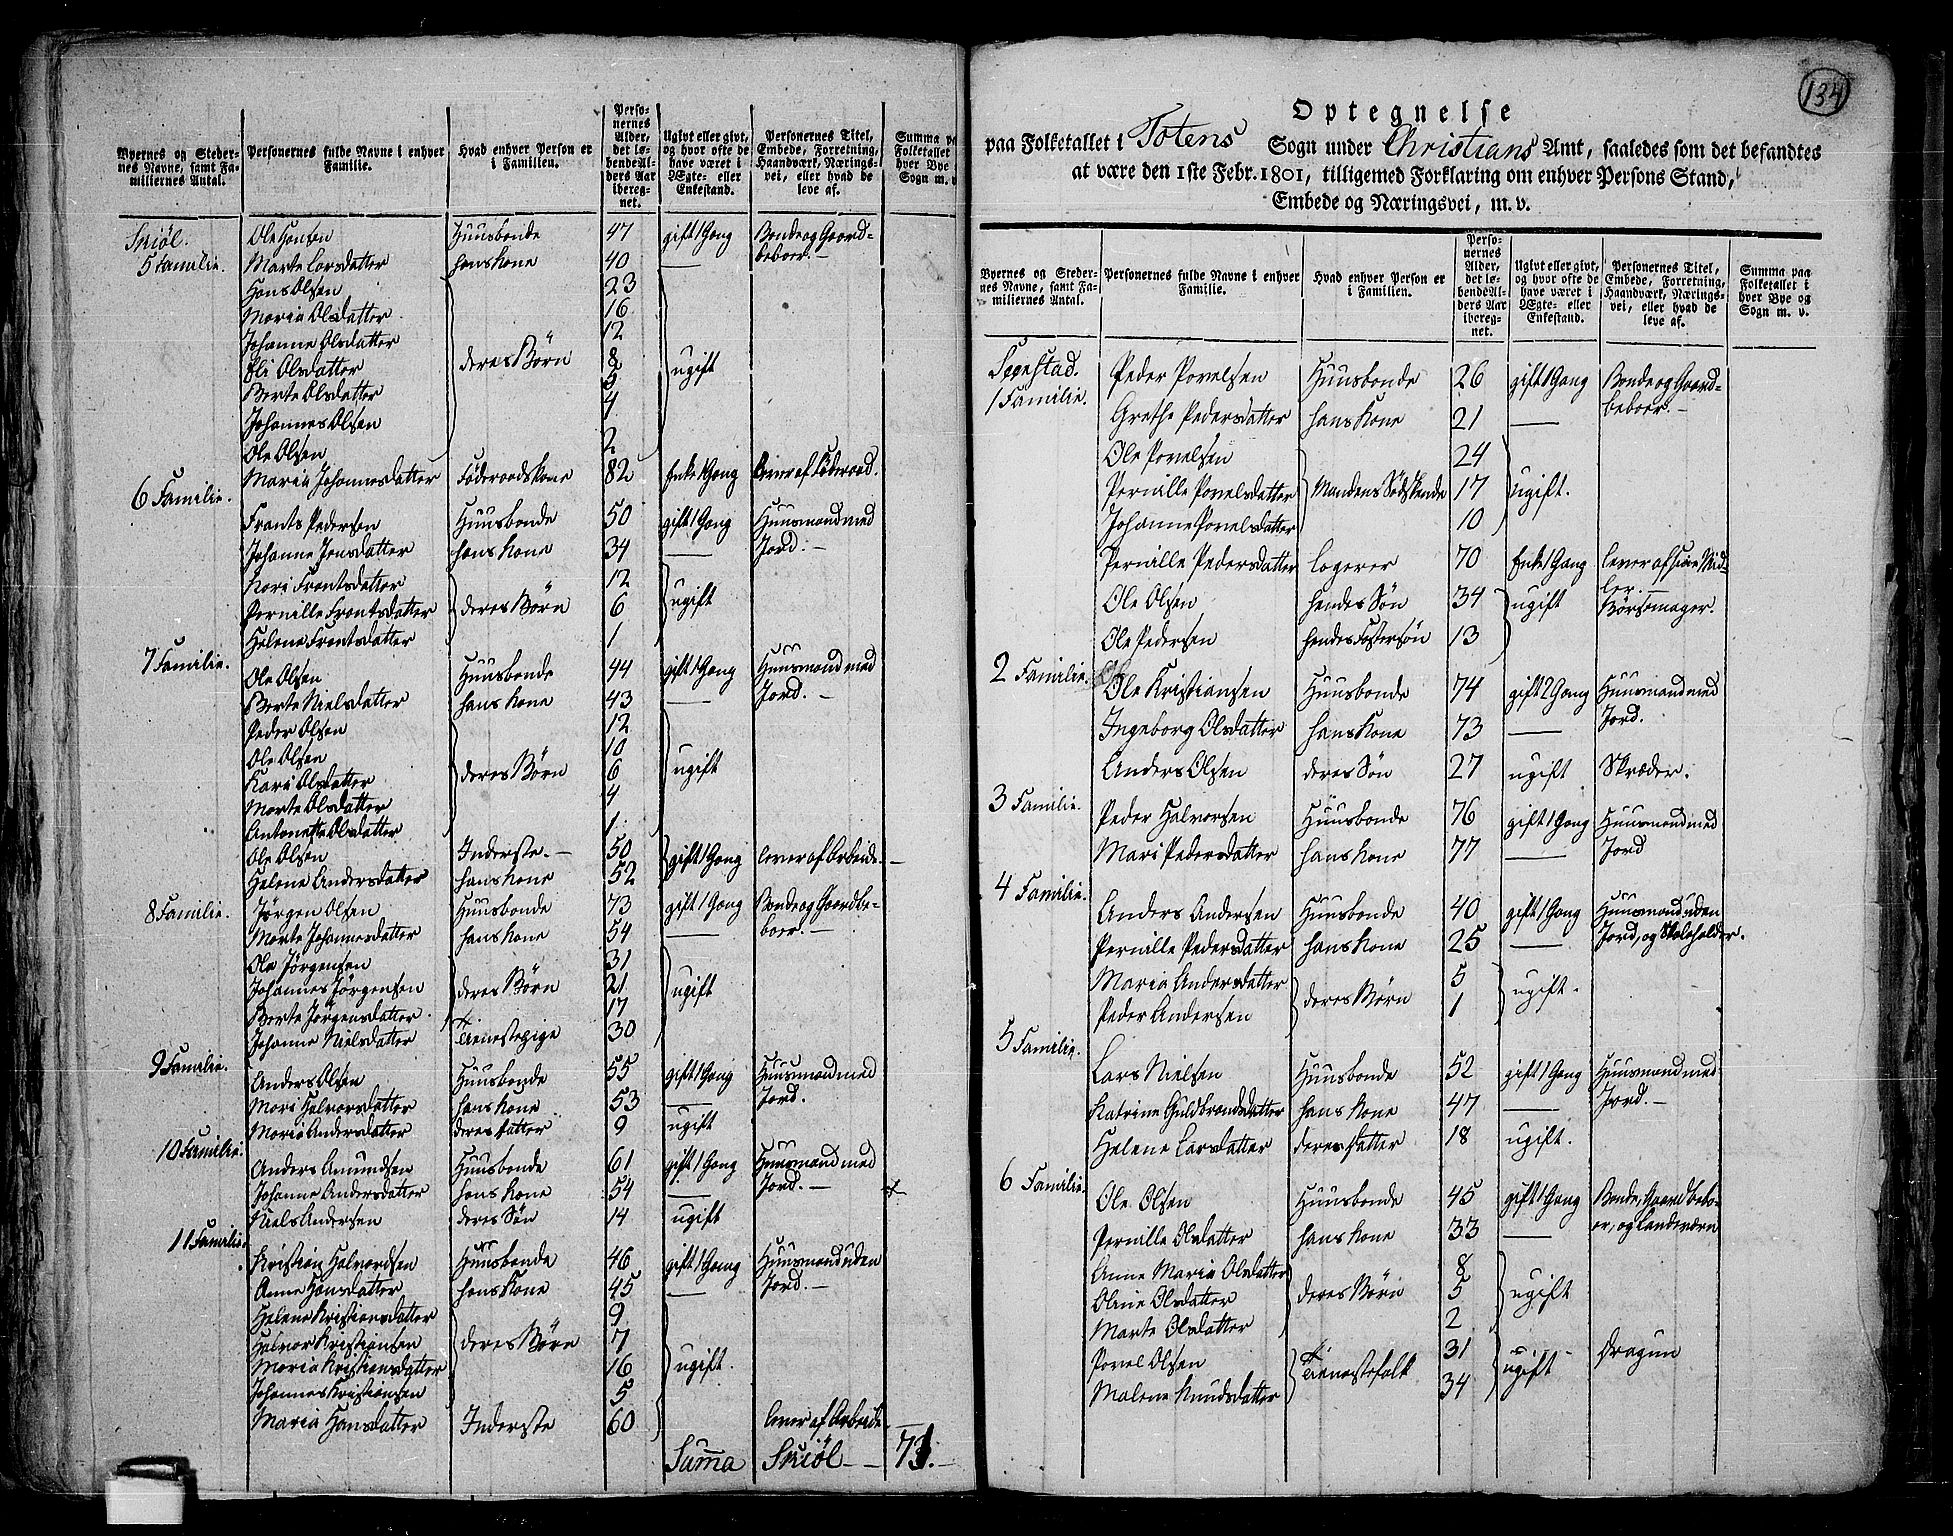 Byernes og Steder-
nes Navne, samt Fa-
miliernes Antal.
Personernes fulde Navne i enhver
Familie.
Hvad enhver Person er
i Familien.
Perso-
nernes
Alder,
det lø-
bende Al-
ders Aar
ibereg-
net.
Ugivt eller givt,
og hvor ofte de
have været i
Ægte- eller
Enkestand.
Personernes Titel,
Embede, Forretning,
Haandværk, Nærings-
vei, eller hvad de
leve af.
Summa pa
Folketallet
hver Bye
Sogn m. v.
Skiøl.
5 Familie.
Ole Hansen Huusbonde 47 gift 1 Gang Bonde og Gaard-
Marte Larsdatter hans Kone 40 — beboer. —
Hans Olsen 23
Maria Olsdatter 16
Johanne Olsdatter 12
Eli Olsdatter deres Børn 8 ugift
Berte Olsdatter 5
Johannes Olsen 4
Ole Olsen 2
Maria Johannesdatter Føderaadskone 82 Enke 1 Gang lever af Føderaad.
6 Familie.
Frants Pedersen Huusbonde 50 gift 1 Gang Huusmand med
Johanne Jensdatter hans Kone 34 — Jord. —
Kari Frantsdatter 12
Pernille Frantsdatter deres Børn 6 ugift
Helene Frantsdatter 1
7 Familie.
Ole Olsen Huusbonde 44 gift 1 Gang Huusmand med
Berte Nielsdatter hans Kone 43 — Jord. —
Peder Olsen 12
Ole Olsen 10
Kari Olsdatter deres Børn 6 ugift
Marte Olsdatter 4
Antonette Olsdatter 1
Ole Olsen Inderste. — 50 gift 1 Gang lever af Arbeide. —
Helene Andersdatter hans Kone 52
8 Familie.
Jørgen Olsen Huusbonde 73 gift 1 Gang Bonde og Gaardbe-
Marte Johannesdatter hans Kone 54 — boer. —
Ole Jørgensen 31
Johannes Jørgensen deres Børn 21 ugift
Berte Jørgensdatter 17
Johanne Nielsdatter Tienestepige 30
9 Familie.
Anders Olsen Huusbonde 55 gift 1 Gang Huusmand med
Mari Halvorsdatter hans Kone 53 — Jord.
Maria Andersdatter deres Datter 9 ugift
10 Familie.
Anders Amundsen Huusbonde 61 gift 1 Gang Huusmand med
Johanne Andersdatter hans Kone 54 — Jord. —
Niels Andersen deres Søn 14 ugift
11 Familie.
Kristian Halvordsen Huusbonde 46 gift 1 Gang Huusmand uden
Anne Hansdatter hans Kone 45 — Jord. —
Helene Kristiansdatter 9
Halvor Kristiansen deres Børn 7
Maria Kristiansdatter 16 ugift.
Johannes Kristiansen 5
Maria Hansdatter Inderste 60 lever af Arbeide
Summa Skiøl — 71. —
134
Optegnelse
paa Folketallet i Totens Sogn under Christians Amt, saaledes som det befandtes
at være den 1ste Febr. 1801, tilligemed Forklaring om enhver Persons Stand,
Embede og Næringsvei, m. v.
Byernes og Steder-
nes Navne, samt Fa-
miliernes Antal.
Personernes fulde Navne i enhver
Familie.
Hvad enhver Person er
i Familien.
Perso-
nernes
Alder,
det lø-
bende Al-
ders Aar
iberegn-
net.
Ugivt eller givt,
og hvor ofte de
have været i
Ægte- eller
Enkestand.
Personernes Titel,
Embede, Forretning,
Haandværk, Nærings-
vei, eller hvad de
leve af.
Summa paa
Folketallet i
hver Bye og
Sogn m. v.
1 Familie.
Peder Povelsen Huusbonde 26 gift 1 Gang Bonde og Gaard-
Grethe Pedersdatter hans Kone 21 — beboer. —
Ole Povelsen 24
Pernille Povelsdatter Mandens Sødskende 17 ugift.
Johanne Povelsdatter 10
Pernille Pedersdatter Logerer 70 Enke 1 Gang lever af sine Mid-
ler. —
Ole Olsen hendes Søn 34 ugift Børsemager.
Ole Pedersen hendes Fostersøn 13
2 Familie.
Ole Kristiansen Huusbonde 74 gift 2 Gang Huusmand med
Ingeborg Olsdatter hans Kone 73 — Jord.
Anders Olsen deres Søn 27 ugift Skræder.
3 Familie.
Peder Halvorsen Huusbonde 76 gift 1 Gang Huusmand med
Mari Pedersdatter hans Kone 77 — Jord
4 Familie.
Anders Andersen Huusbonde 40 gift 1 Gang Huusmand uden
Pernille Pedersdatter hans Kone 25 — Jord, og Skoleholder.
Maria Andersdatter deres Børn 5 ugift.
Peder Andersen 1
5 Familie.
Lars Nielsen Huusbonde 52 gift 1 Gang Huusmand med
Katrine Guldbrandsdatter hans Kone 47 — Jord. —
Helene Larsdatter deres Datter 18 ugift.
6 Familie.
Ole Olsen Huusbonde 45 gift 1 Gang Bonde, Gaardbebo-
Pernille Olsdatter hans Kone 33 — er, og Landværn
Anne Maria Olsdatter 8
Oline Olsdatter deres Børn 5 ugift
Marte Olsdatter 2
Povel Olsen Tienestefolk 31 ugift Dragun
Malene Knudsdatter 34